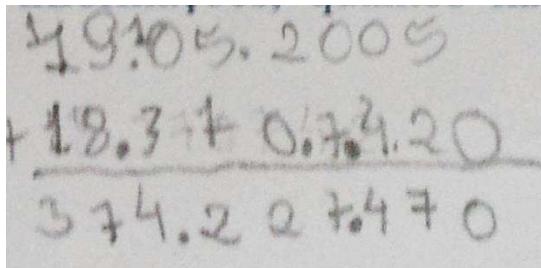 19.05.2005
+ 18.3 7 0.7.4.20
374.2 2 7.4 7 0